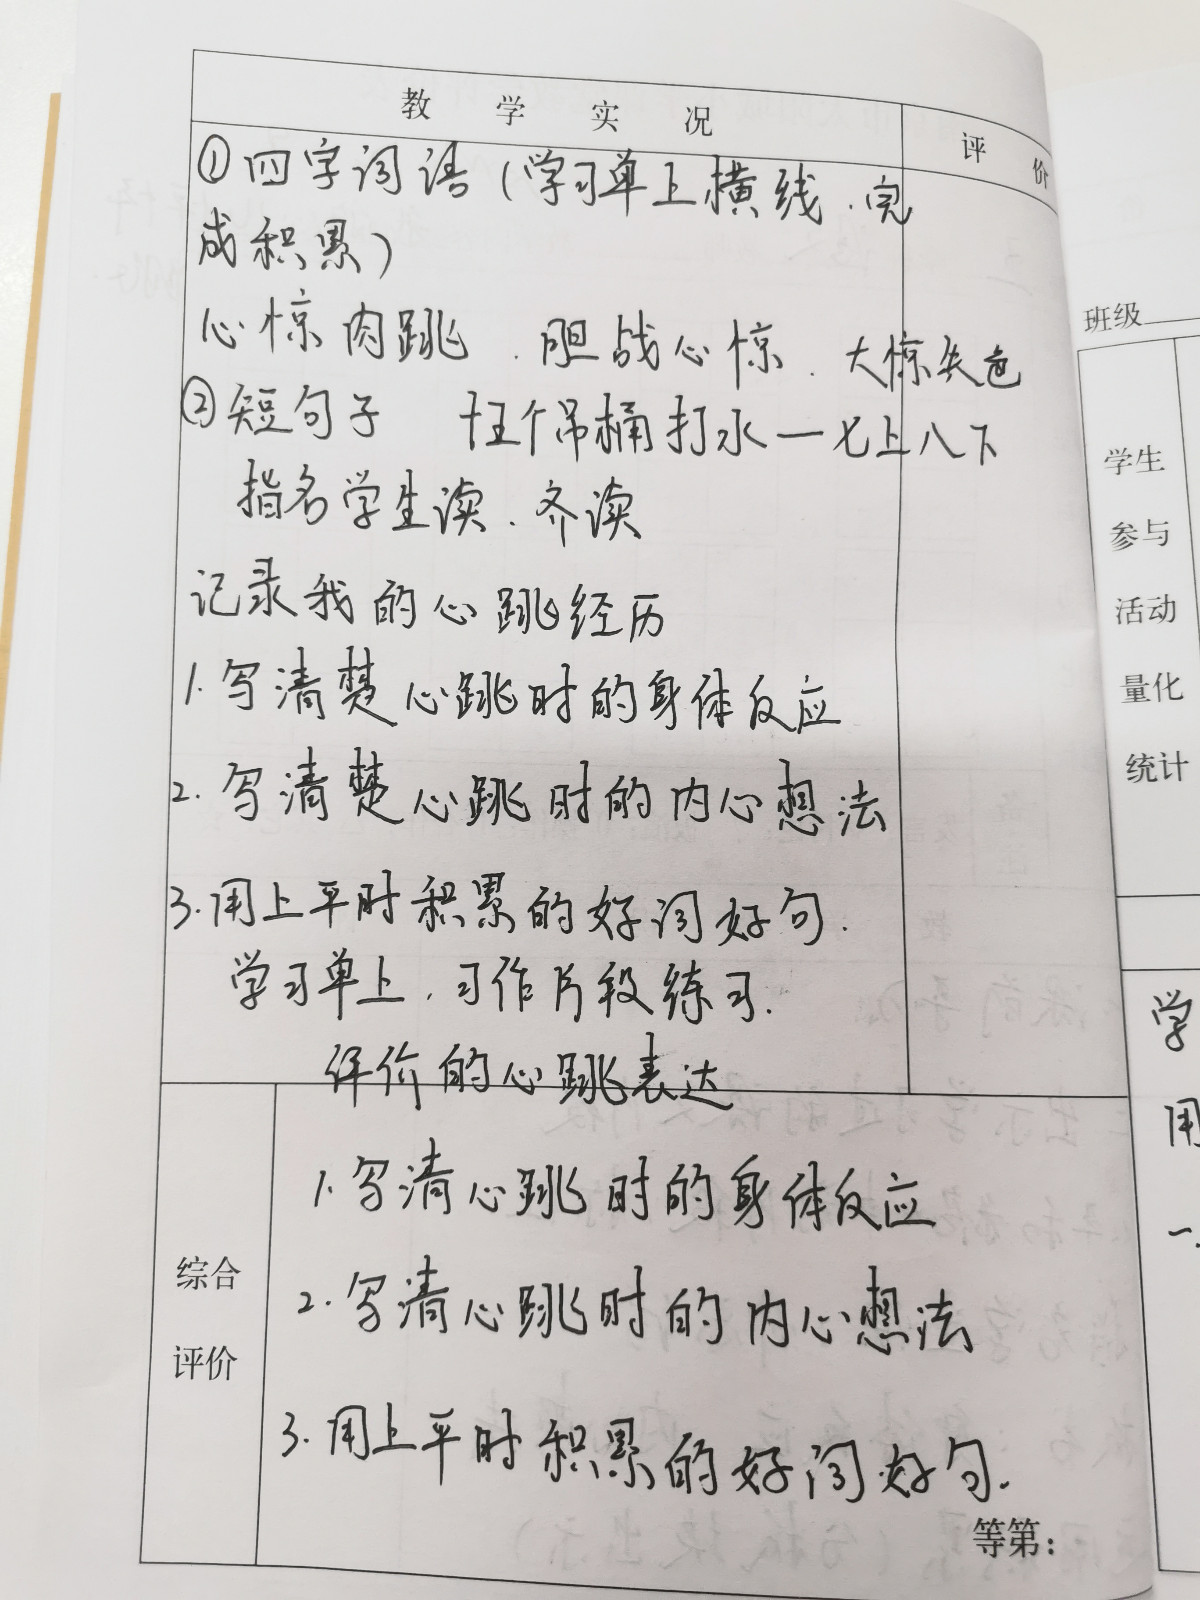 教学实况
评价
①四字词语（学习单上横线.完
成积累）
心惊肉跳.胆战心惊.大惊失色
②短句子 十五个吊桶打水—七上八下
指名学生读.齐读
记录我的心跳经历
1.写清楚心跳时的身体反应
2.写清楚心跳时的内心想法
3.用上平时积累的好词好句.
学习单上.习作片段练习.
评价的心跳表达
综合
评价
1.写清心跳时的身体反应
2.写清心跳时的内心想法
3.用上平时积累的好词好句.
等第：
班级
学生
参与
活动
量化
统计
学
用
一.